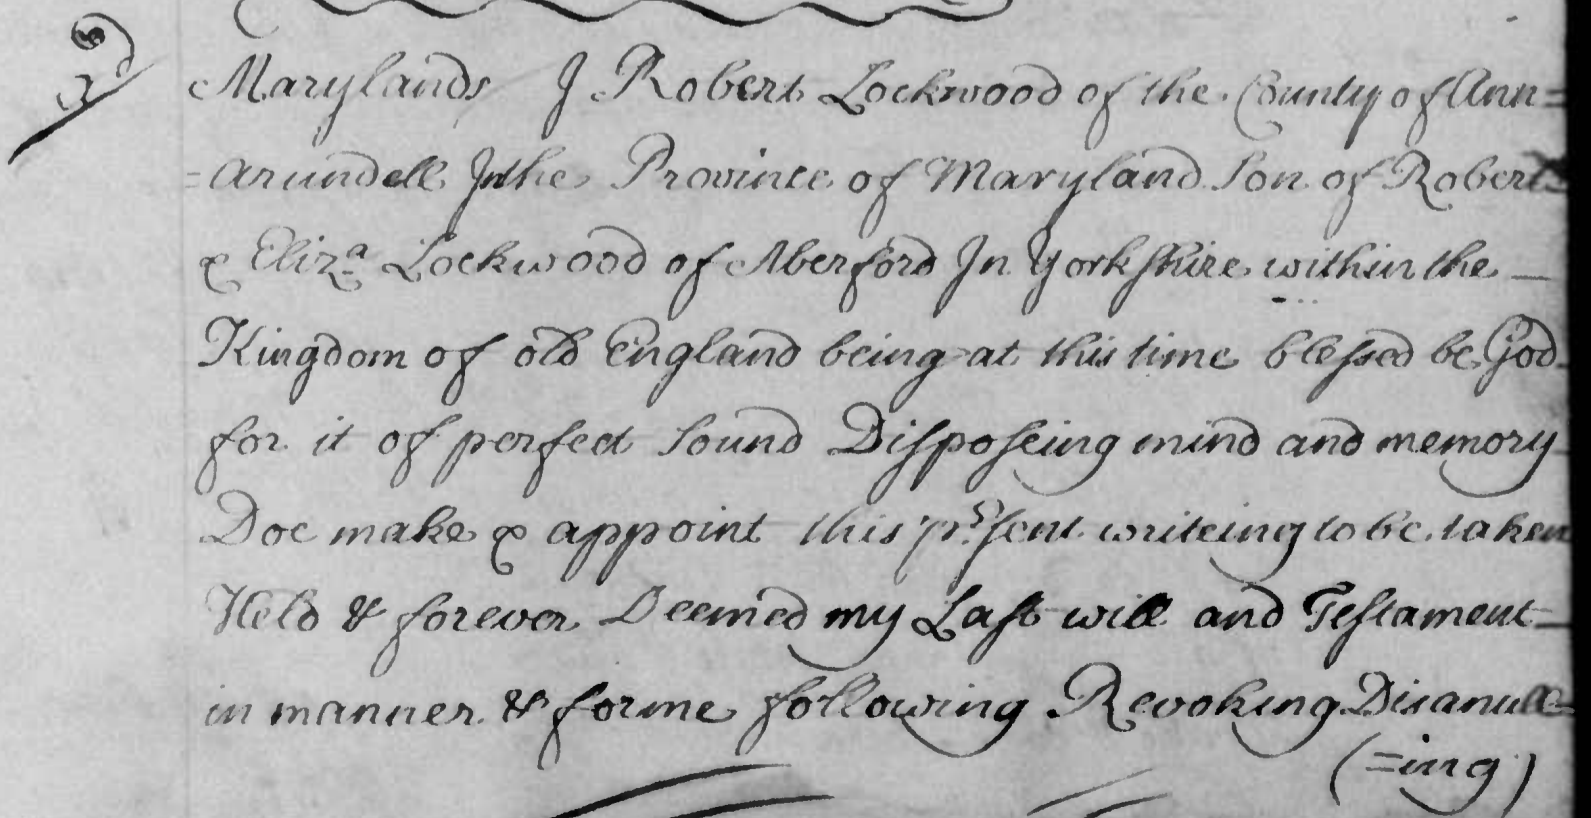 Marylands I Robert Lockwood of the County of Ann=
=Arundell In the Province of Maryland Son of Robert
& Eliz^a Lockwood of Aberford In Yorkshire within the
Kingdom of old England being at this time blessed be God
for it of perfect Sound Disposeing mind and memory
Doe make & appoint this p^rsent writeing to be taken
Held & forever Deemed my Last will and Testament
in manner & forme following Revoking Disanull=
(=ing)